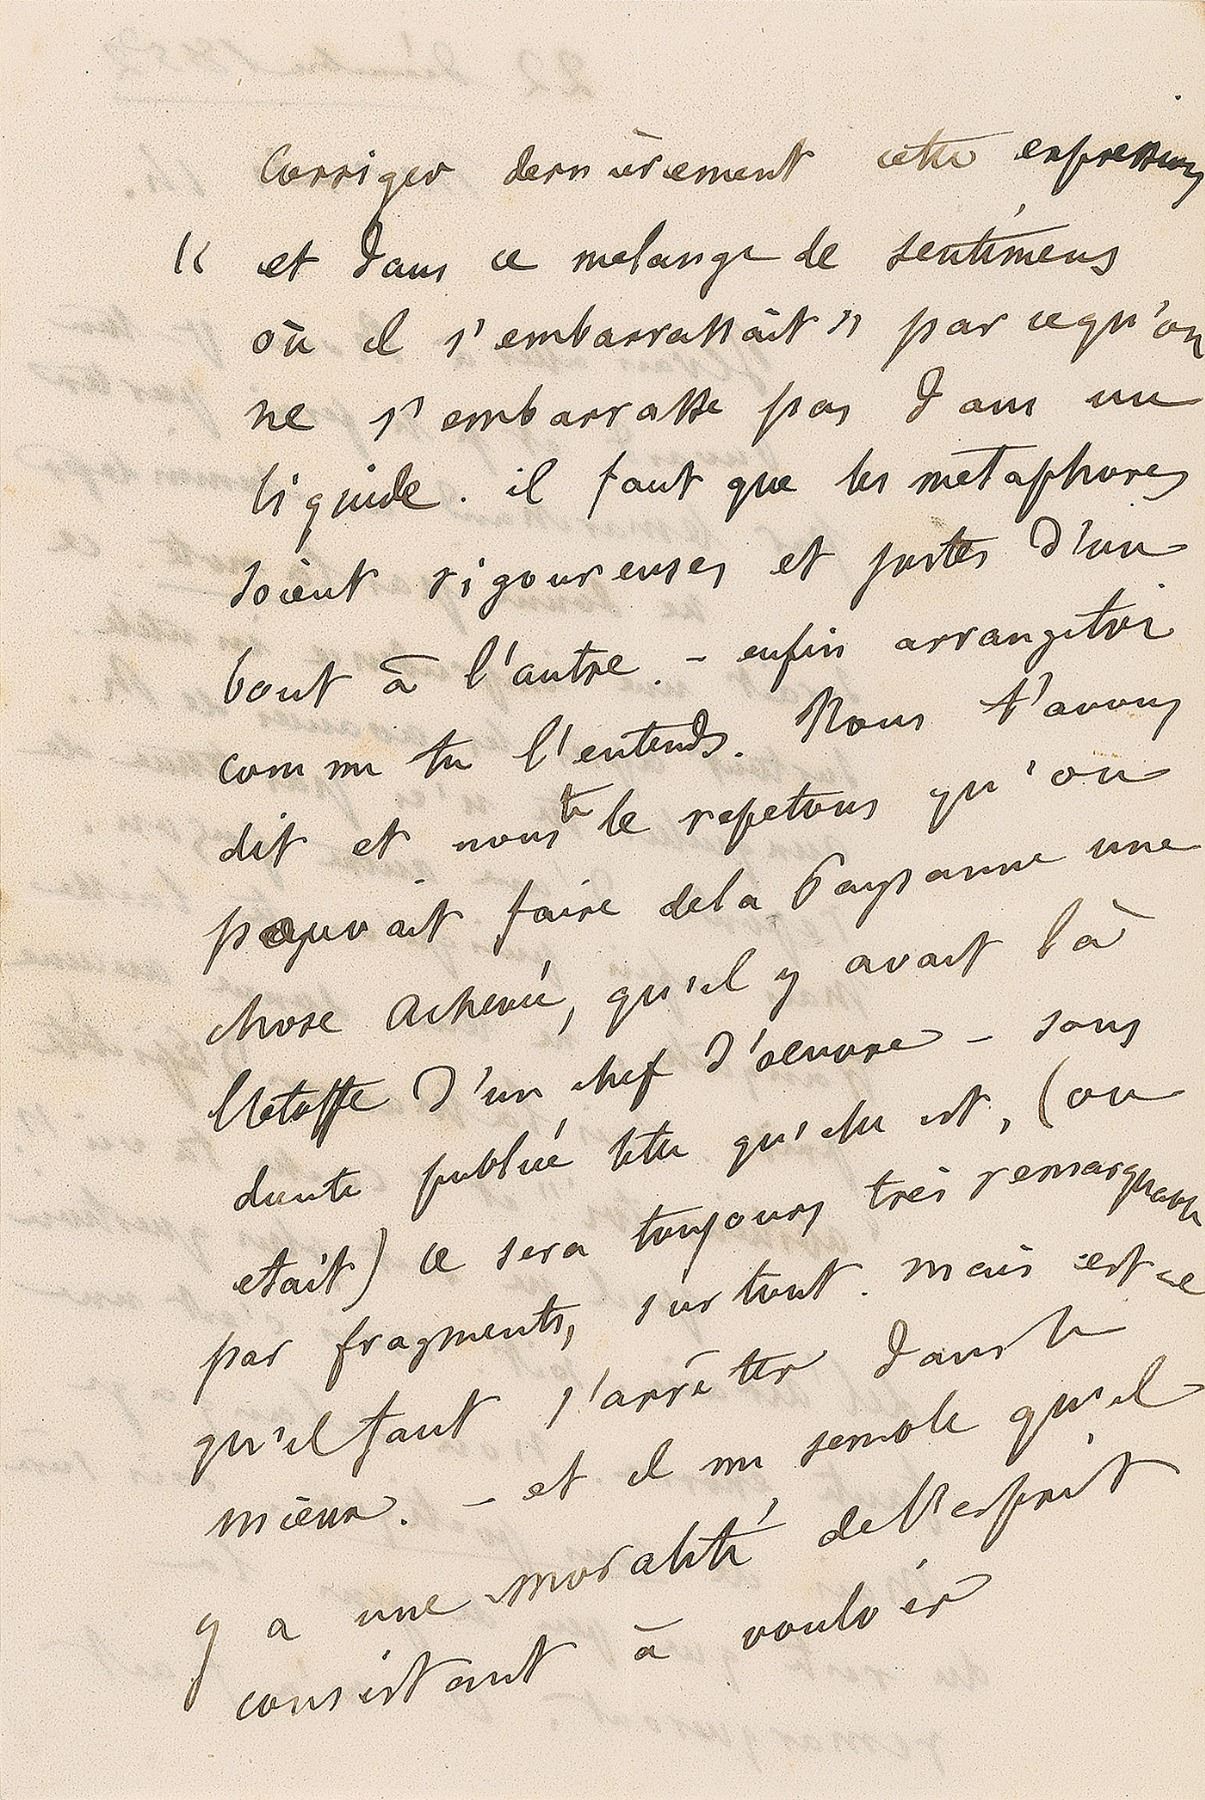 corriger dernièrement cette expression
« et dans ce melange de sentimens
où il s'embarrassait » par cequ'on
ne s'embarrasse pas dans un
liquide. il faut que les metaphores
soient rigoureuses et justes d'un
bout à l'autre. – enfin arrangetoi
comme tu l'entends. Nous t'avons
dit et nous te le repetons qu'on
pouvait faire dela Paysanne une
chose achevée, qu'il y avait là
l'etoffe d'un chef d'oeuvre – sans
doute publiée telle qu'elle est, (ou
etait) ce sera toujours très remarquable
par fragments, surtout. mais est-ce
qu'il faut s'arrêter dans le
mieux. – et il me semble qu'il
y a une moralité de l'esprit
consistant à vouloir